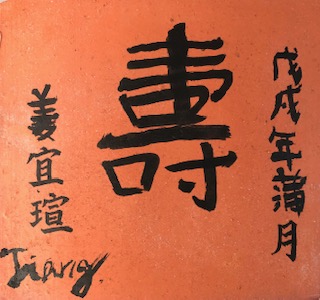 戊戌年蒲月
壽
姜宜瑄
Jiang